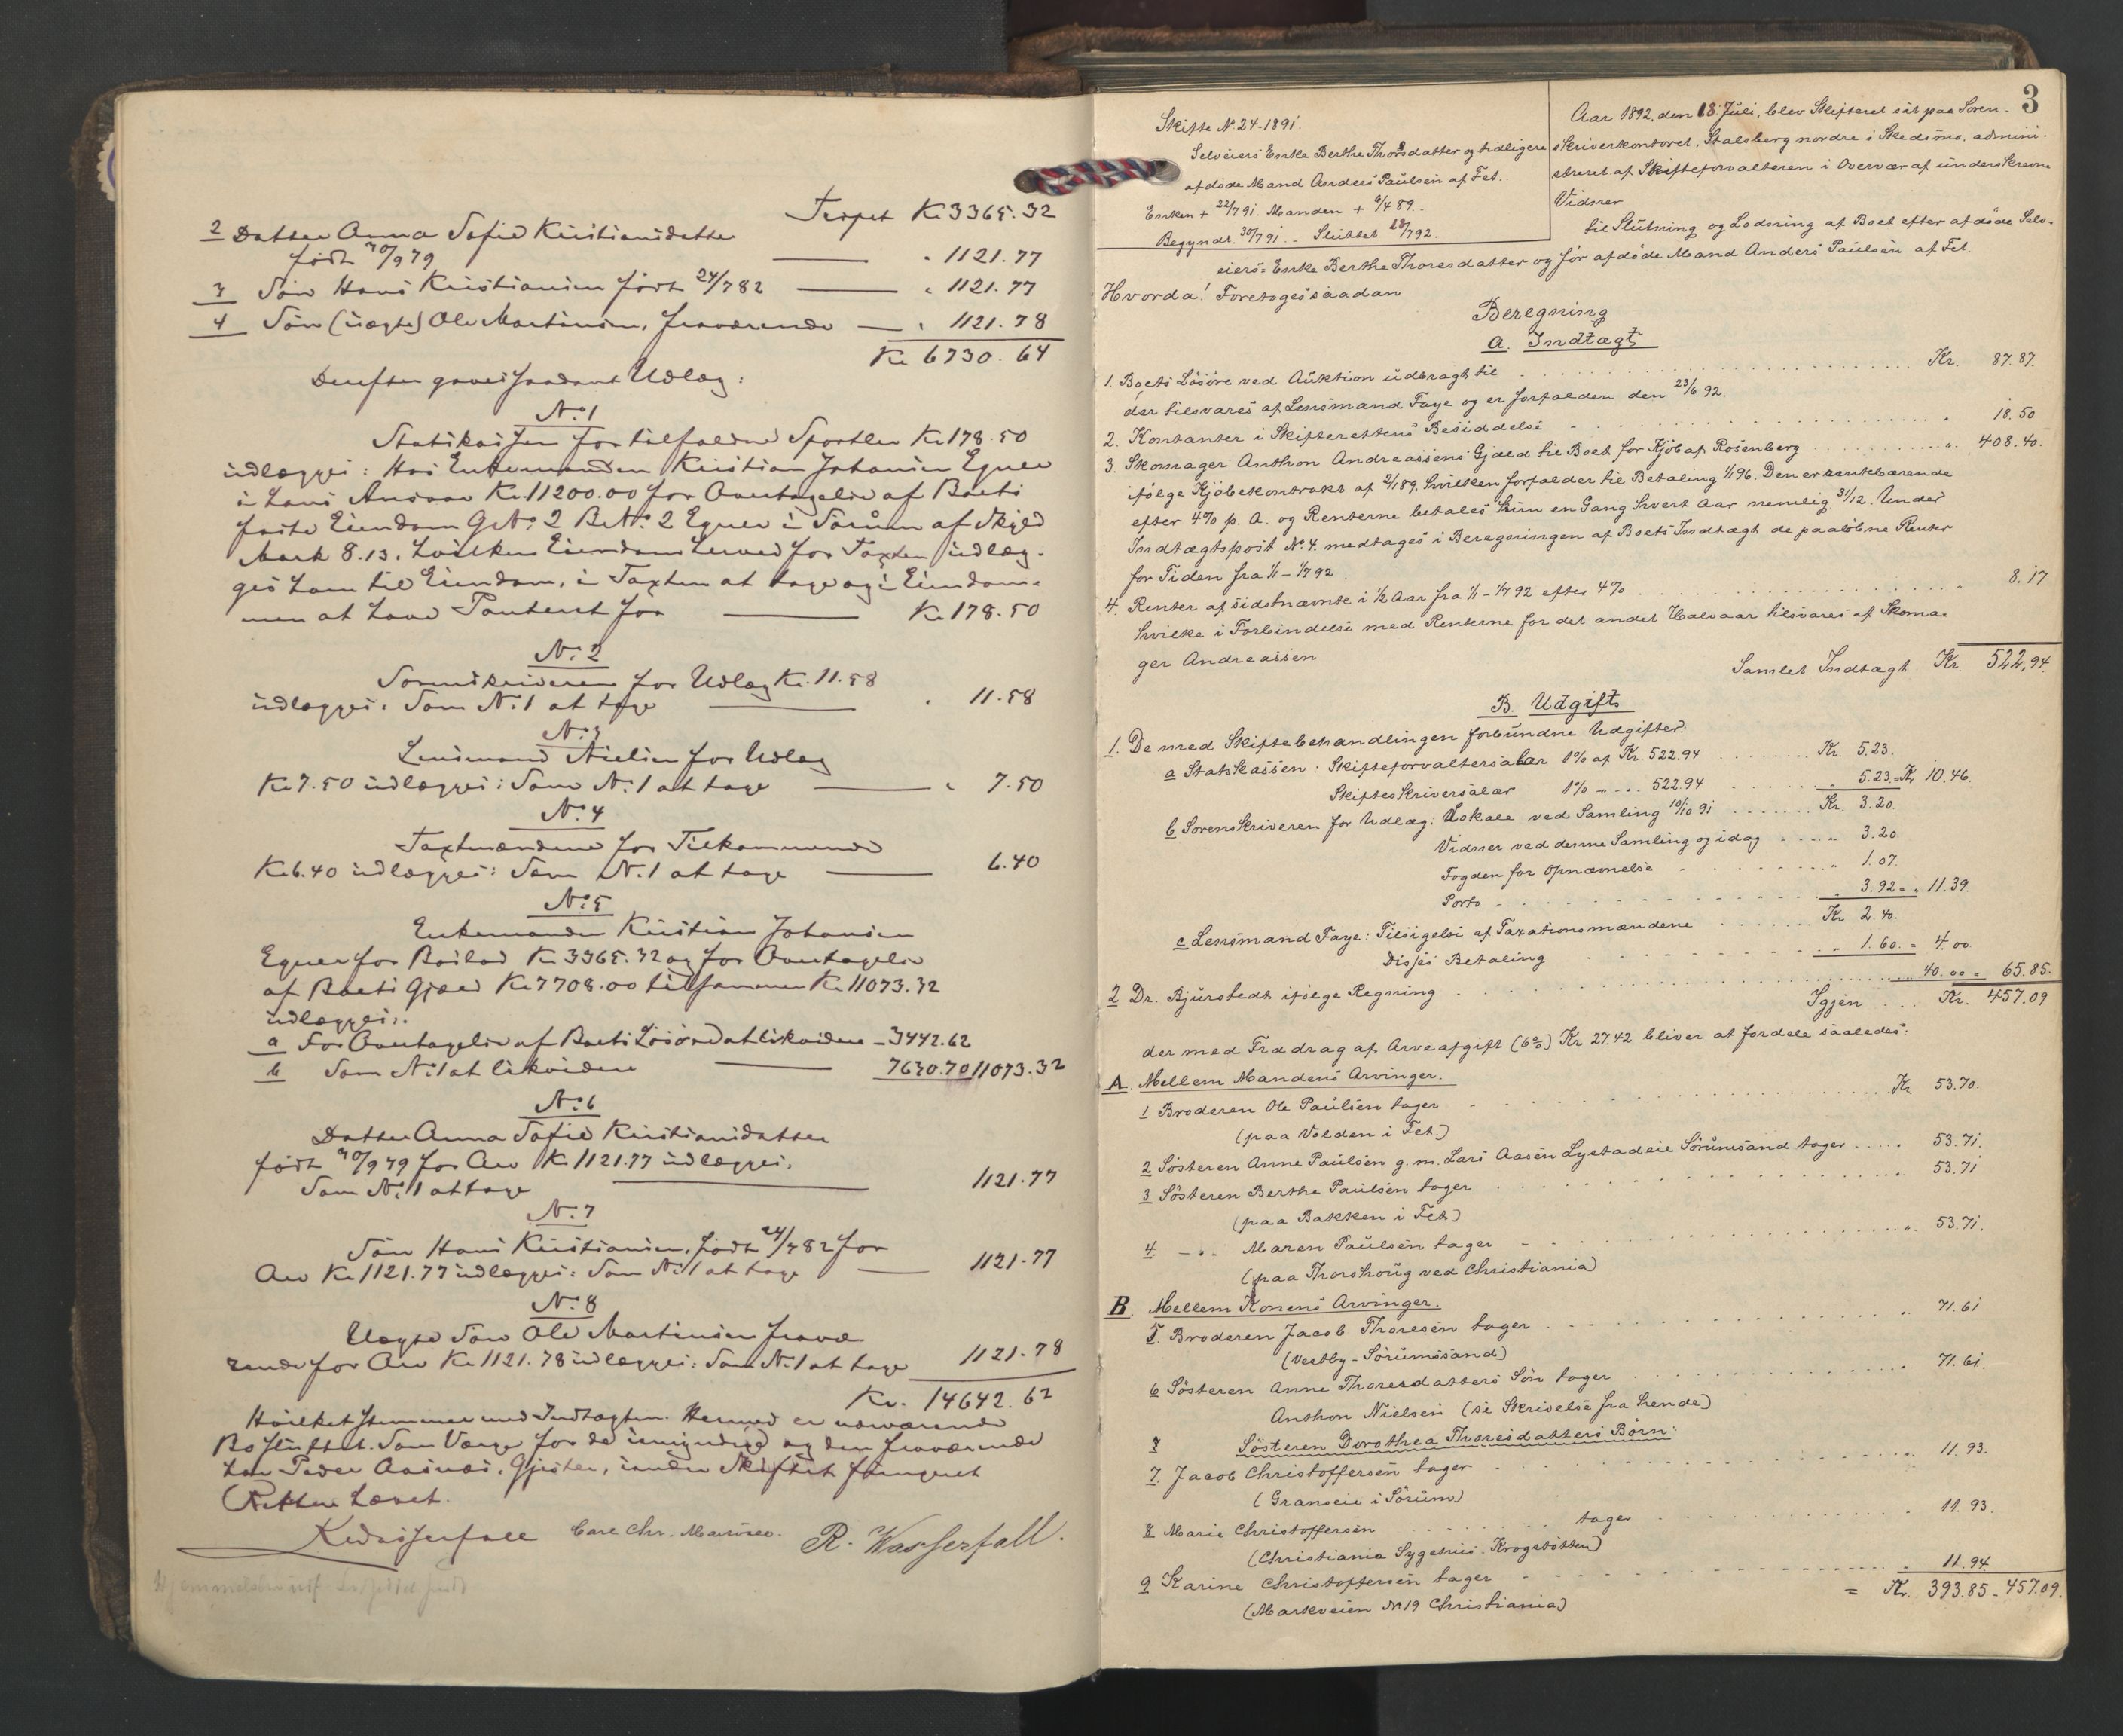 Trspt Kr 3365.32
2 Datter Anna Sofie Kristiansdatter
født 30/9 79 — " 1121.77
3 Søn Hans Kristiansen født 24/7 82 — " 1121.77
4 Søn (uægte) Ole Martinsen, fraværende — " 1121.78
Kr 6730.64
Derefter gaves saadant Udlæg:
No. 1
Statskassen for tilfaldne Sportler Kr 178.50
udlægges: Hos Enkemanden Kristian Johansen Egner
i hans Ansvar Kr. 11200.00 for Overtagelse af Boets
faste Eiendom GrNo: 2 BrNo: 2 Egner i Sørum af Skjld
Mark 8.13, hvilken Eiendom herved for Taxten udlæg-
ges ham til Eiendom, i Taxten at tage og i Eiendom-
men at have Panteret for — Kr 178.50
No. 2
Sorenskriveren for Udlæg Kr. 11.58
udlægges: Som No. 1 at tage — " 11.58
No. 3
Lensmand Nielsen for Udlæg
Kr 7.50 udlægges: Som No. 1 at tage — " 7.50
No. 4
Taxtmændene for Tilkommende
Kr 6.40 udlægges: Som No. 1 at tage — 6.40
No. 5
Enkemanden Kristian Johansen
Egner for Boslod Kr 3365.32 og for Overtagelse
af Boets Gjæld Kr 7708.00 tilsammen Kr 11073.32
udlægges:
a For Overtagelse af Boets Løsøre at likvidere - 3442.62
b Som No. 1 at likvidere — 7630.70 11073.32
No. 6
Datter Anna Sofie Kristiansdatter
født 30/9 79 for Arv Kr 1121.77 udlægges:
Som No. 1 at tage — 1121.77
No. 7
Søn Hans Kristiansen, født 24/7 82 for
Arv Kr 1121.77 udlægges: Som No. 1 at tage — 1121.77
No. 8
Uægte Søn Ole Martinsen fravæ-
rende for Arv Kr 1121.78 udlægges: Som No. 1 at tage 1121.78
Kr. 14642.62
Hvilket stemmer med Indtægten. Hermed er nærværende
Bo sluttet. Som Værge for de umyndige og den fraværende
har Peder Aasnæs, Gjester, under Skiftet fungeret
Retten hævet.
KWasserfall Carl Chr. R. Wasserfall.
3
Skifte No. 24-1891.
Selveiers Enke Berthe Thorsdatter og tidligere
afdøde Mand Anders Paulsen af Fet.
Enken + 22/7 91. Manden + 6/4 89.
Begyndt 30/7 91. - Sluttet 18/7 92.
Aar 1892, den 18 Juli, blev Skifteret sat paa Soren-
skriverkontoret, Stalsberg nordre i Skedsmo, admini-
streret af Skifteforvalteren i Overvær af underskrevne
Vidner
til Slutning og Lodning af Boet efter afdøde Selv-
eiers Enke Berthe Thoresdatter og før afdøde Mand Anders Paulsen af Fet.
Hvorda! Foretoges saadan
Beregning
a. Indtægt
1. Boets Løsøre ved Auktion udbragt til . . . Kr. 87.87.
der tilsvares af Lensmand Faye og er forfalden den 23/6 92.
2. Kontanter i Skifterettens Besiddelse . . . " 18.50
3. Skomager Anthon Andreassens Gjæld til Boet for Kjøb af Rosenberg . . . " 408.40.
ifølge Kjøbekontrakt af 2/1 89, hvilken forfalder til Betaling 1/1 96. Den er rentebærende
efter 4% p. A. og Renterne betales kun en Gang hvert Aar nemlig 31/12. Under
Indtægtspost No. 4. medtages i Beregningen af Boets Indtægt de paaløbne Renter
for Tiden fra 1/1 - 1/7 92.
4. Renter af sidstnævnte i 1/2 Aar fra 1/1 - 1/7 92 efter 4% . . . " 8.17
hvilke i Forbindelse med Renterne for det andet Halvaar tilsvares af Skoma-
ger Andreassen
Samlet Indtægt Kr. 522,94.
B. Udgift
1. De med Skiftebehandlingen forbundne Udgifter:
a Statskassen: Skifteforvaltersalær 1% af Kr. 522.94 . . . Kr. 5.23.
Skifteskriversalær 1% - " - 522.94 . . . " 5.23. = Kr 10.46.
b Sorenskriveren for Udlæg: Lokale ved Samling 10/10 91 . . . Kr. 3.20.
Vidner ved denne Samling og idag . . . " 3.20.
Fogden for Opnævnelse . . . " 1.07.
Porto . . . " 3.92 = " 11.39.
c Lensmand Faye: Tilsigelse af Taxationsmændene . . . Kr 2.40.
Disses Betaling . . . " 1.60. = 4.00.
2 Dr. Bjurstedt ifølge Regning . . . 40.00 = 65.85.
Igjen . . . Kr. 457.09
der med Fradrag af Arveafgift (6%) Kr 27.42 bliver at fordele saaledes:
A. Mellem Mandens Arvinger.
1 Broderen Ole Paulsen tager . . . Kr 53.70.
(paa Volden i Fet.)
2 Søsteren Anne Paulsen g. m. Lars Aasen Lystadeie Sørumsand tager . . . 53.71.
3 Søsteren Berthe Paulsen tager . . . " 53.71
(paa Bakken i Fet)
4. - " - Maren Paulsen tager . . . " 53.71.
(paa Thorshoug ved Christiania)
B. Mellem Konens Arvinger.
5. Broderen Jacob Thoresen tager . . . " 71.61
(Vestby - Sørumsand)
6 Søsteren Anne Thoresdatters Søn tager . . . " 71.61.
Anthon Nielsen (se Skrivelse fra hende)
7 Søsteren Dorothea Thoresdatters Børn:
7. Jacob Christoffersen tager . . . " 11.93.
(Granseie i Sørum)
8 Marie Christoffersen . . . tager . . . " 11.93.
(Christiania Sygehus. Krogstøtten)
9 Karine Christoffersen tager . . . " 11.94.
(Markveien No 19 Christiania)
= Kr. 393.85 - 457.09.